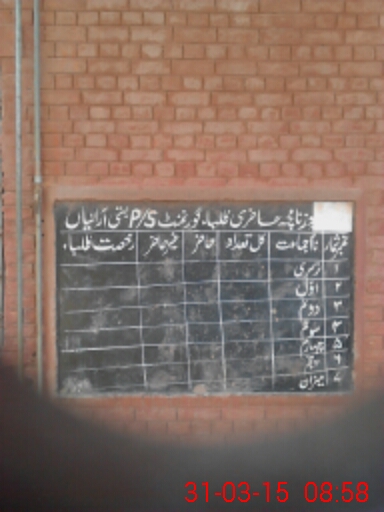 روزنامچہ حاضری طلباء گورنمنٹ P/S بستی آرائیاں
نمبر شمار نام جماعت کل تعداد حاضر غیر حاضر رخصت طلباء
۱ نرسری
۲ اوّل
۳ دوئم
۴ سوئم
۵ چہارم
۶ پنجم
۷ میزان
31-03-15 08:58